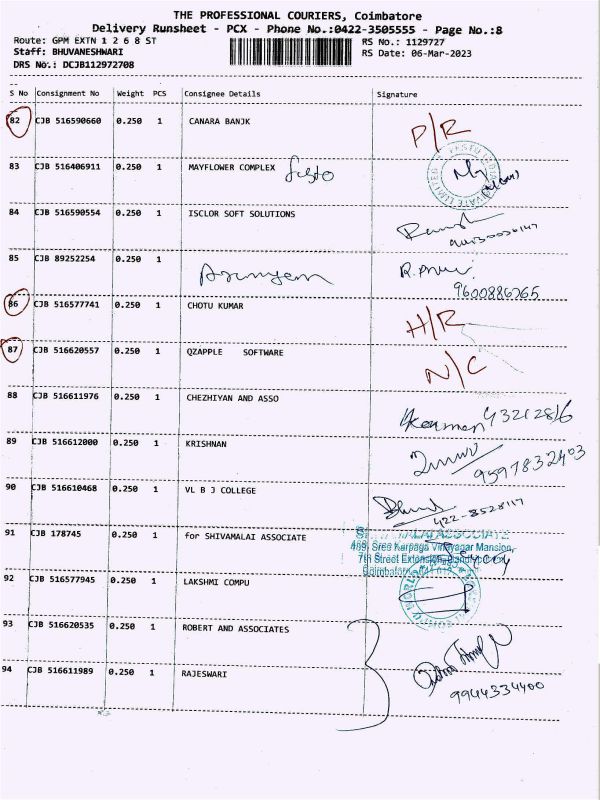 THE PROFESSIONAL COURIERS, Coimbatore
Delivery Runsheet - PCX - Phone No.:0422-3505555 - Page No.:8
Route: GPM EXTN 1 2 6 8 ST
RS No.: 1129727
Staff: BHUVANESHWARI
RS Date: 06-Mar-2023
DRS No.: DCJB112972708
S No Consignment No Weight PCS Consignee Details Signature
82 CJB 516590660 0.250 1 CANARA BANJK P/R
83 CJB 516406911 0.250 1 MAYFLOWER COMPLEX
84 CJB 516590554 0.250 1 ISCLOR SOFT SOLUTIONS
85 CJB 89252254 0.250 1
9600886765
86 CJB 516577741 0.250 1 CHOTU KUMAR H/R
87 CJB 516620557 0.250 1 QZAPPLE SOFTWARE N/C
88 CJB 516611976 0.250 1 CHEZHIYAN AND ASSO 43212816
89 CJB 516612000 0.250 1 KRISHNAN
9597832403
90 CJB 516610468 0.250 1 VL B J COLLEGE
422-8528117
91 CJB 178745 0.250 1 for SHIVAMALAI ASSOCIATE
ASSOCIATE
469, Sree Karpaga Vinayagar Mansion,
7th Street Extension,
92 CJB 516577945 0.250 1 LAKSHMI COMPU
93 CJB 516620535 0.250 1 ROBERT AND ASSOCIATES
94 CJB 516611989 0.250 1 RAJESWARI
9944334400